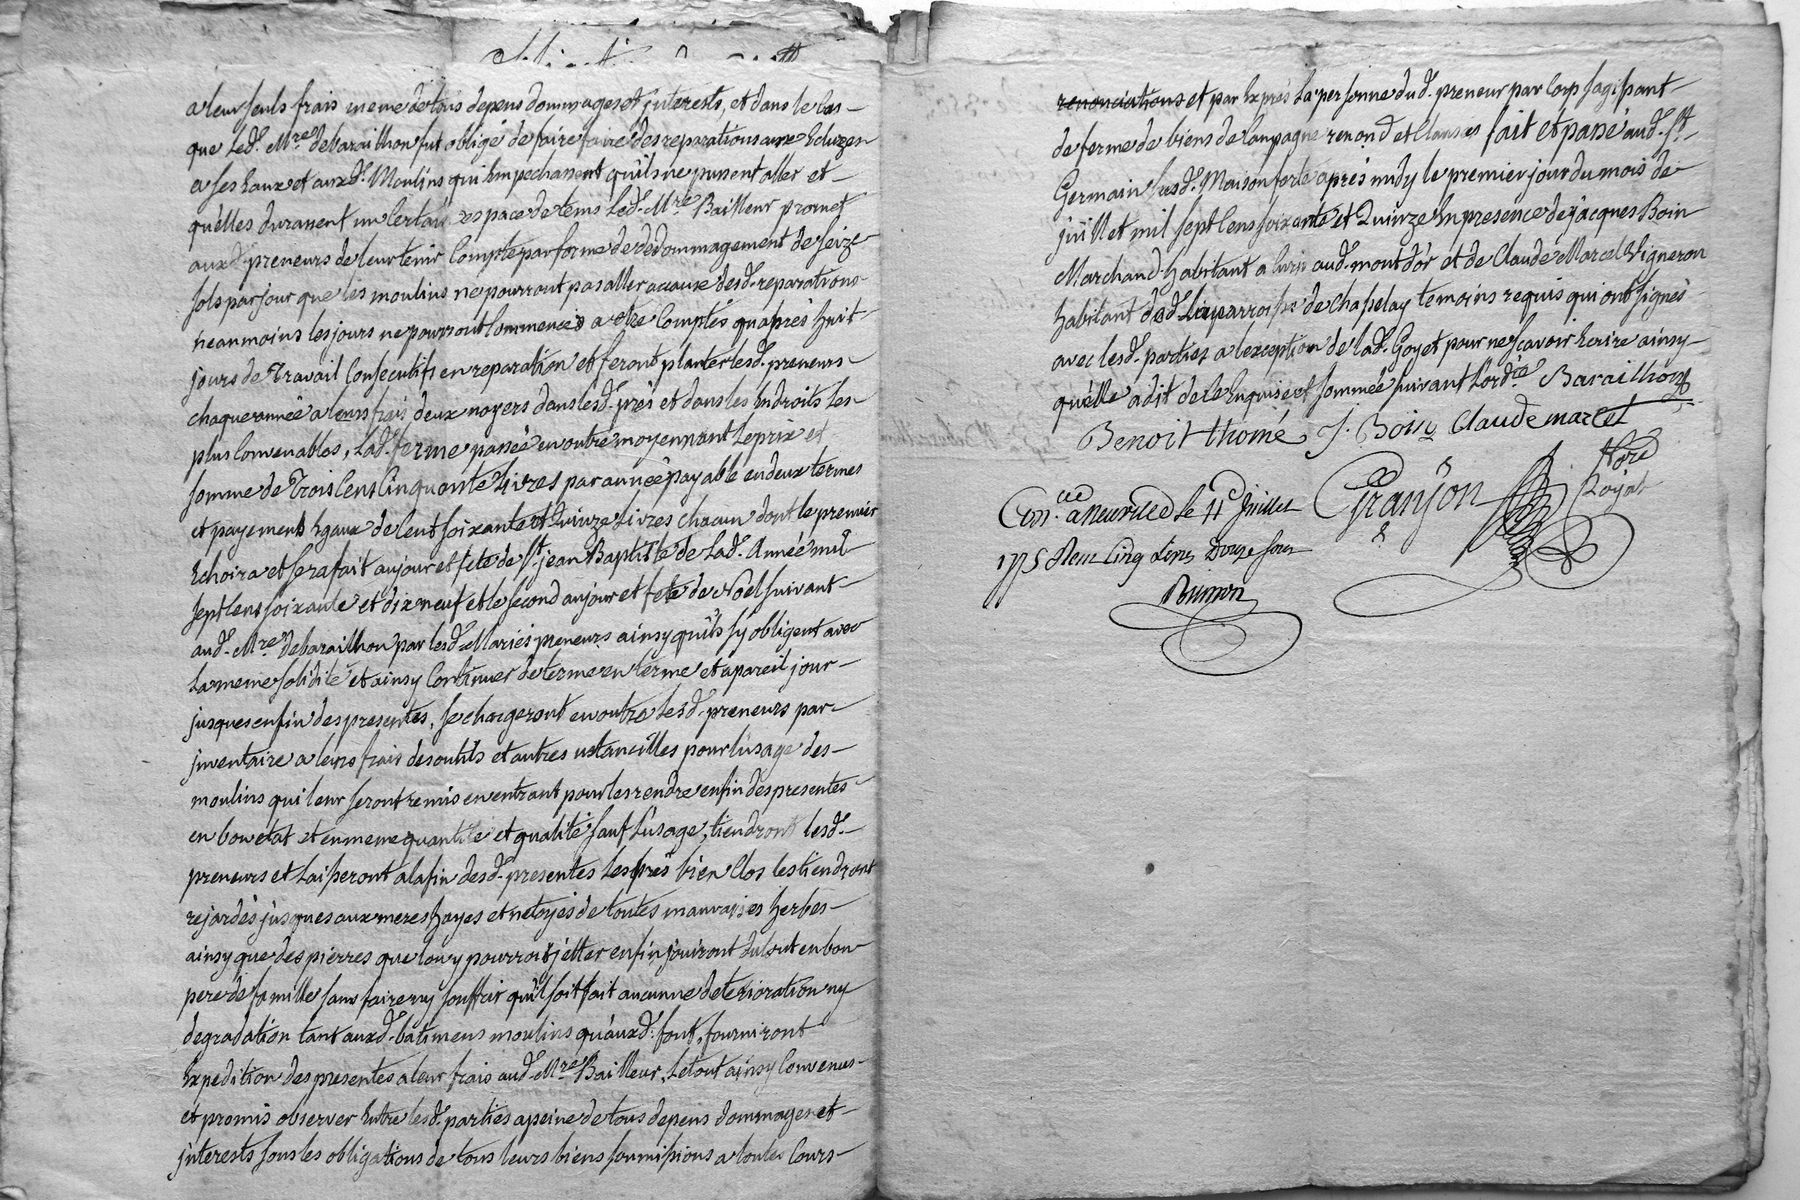 a leur seuls frais meme de tous depens dommages et jnterests, et dans le cas
que led. Mre. debaraillhon fut obligé de faire faire des reparations aux Ecluzes
a ses Eaux et auxd. Moulins qui Empechassent qu'ils ne pussent aller et
qu'elles durassent un certain espace de tems led. Mre. Bailleur promet
auxd. preneurs de leur tenir Compte par forme de dedommagement de seize
sols par jour que les moulins ne pourront pas aller a cause desd. reparations
neanmoins les jours ne pourront commencés a etre Comptés qu'après huit
jours de Travail Consecutifs en reparation et feront planter lesd. preneurs
chaque année a leurs frais deux noyers dans lesd. prés et dans les Endroits les
plus Convenables, lad. ferme passée en outre moyennant le prix et
somme de Trois Cens Cinquante Livres par année payable en deux termes
et payemens Egaux de Cent soixante et Quinze Livres chacun dont le premier
Echoira et se rafait au jour et fete de St. jean Baptiste de lad. Année mil
sept Cens soixante et dix neuf et le second au jour et fete de Noel suivant
aud. Mre. debaraillhon par lesd. Mariés preneurs ainsy qu'ils s'y obligent avec
la meme solidité et ainsy Continuer de terme en terme et a pareil jour
jusques en fin des presentes, se chargeront en outre lesd. preneurs par
jnventaire a leurs frais des outils et autres ustancilles pour l'usage des
moulins qui leur seront remis en entrant pour les rendre en fin des presentes
en bon etat et en meme quantité et qualité sauf l'usage, tiendront lesd.
preneurs et Laisseront a la fin desd. presentes les prés bien Clos les tiendront
rejardés jusques aux meres hayes et netoyés de toutes mauvaises herbes
ainsy que des pierres que l'on y pourroit jetter enfin jouiront du tout en bon
pere de famille sans faire ny souffrir qu'il soit fait aucunne deterioration ny
degradation tant auxd. batimens moulins qu'auxd. font, fourniront
Expedition des presentes a leur frais aud. Mre. Bailleur, Le tout ainsy Convenus
et promis observer Entre lesd. parties a peine de tous depens dommages et
jnterests sous les obligations de tous leurs biens soumissions a toutes Cours
renonciations et par Exprès la personne dud. preneur par Corp sagissant
de ferme de biens de Campagne renond. et Clauses fait et passé aud. St.
Germain susd. Maisonforte après midy le premier jour du mois de
juillet mil sept Cens soixante et Quinze En presence de jacques Boin
Marchand habitant a Curis aud. mont d'or et de Claude Marcel Vigneron
habitant parroisse de Chasselay temoins requis qui ont signés
avec lesd. parties a l'exception de lad. Goyet pour ne sçavoir Ecrire ainsy
qu'elle a dit de ce Enquise et sommée suivant l'ordce Baraillhon
Benoit thomé J. Boin Claude marcel
Con.ée a neuville le 11 Juillet Granjon Nore Royal
1775 Reçu Cinq Livres Douze sous